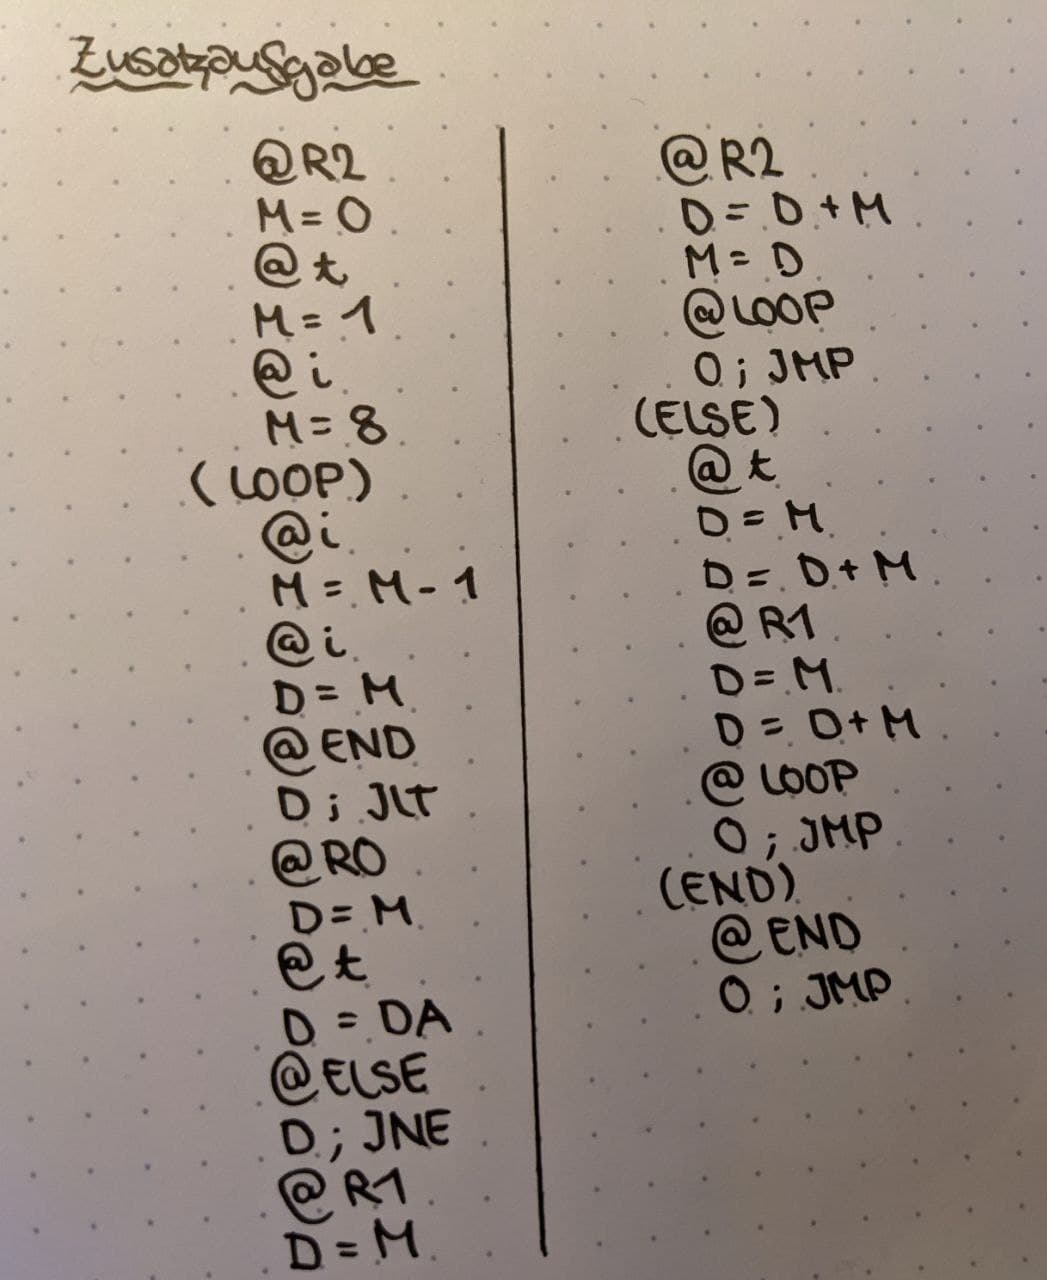 Zusatzaufgabe
@R2
M=0
@t
M=1
@i
M=8
(LOOP)
@i
M=M-1
@i
D=M
@END
D;JLT
@R0
D=M
@t
D=DA
@ELSE
D;JNE
@R1
D=M
@R2
D=D+M
M=D
@LOOP
0;JMP
(ELSE)
@t
D=M
D=D+M
@R1
D=M
D=D+M
@LOOP
0;JMP
(END)
@END
0;JMP